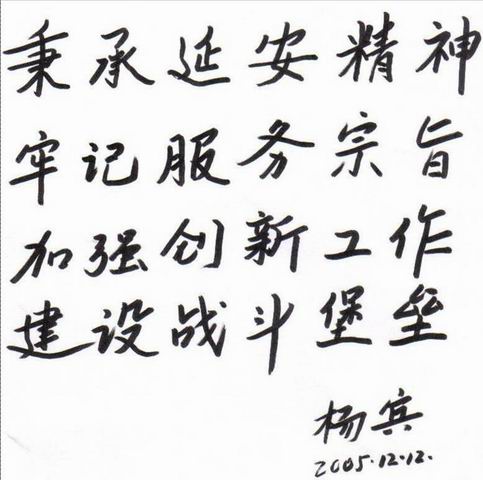 秉承延安精神
牢记服务宗旨
加强创新工作
建设战斗堡垒
杨宾
2005.12.12.